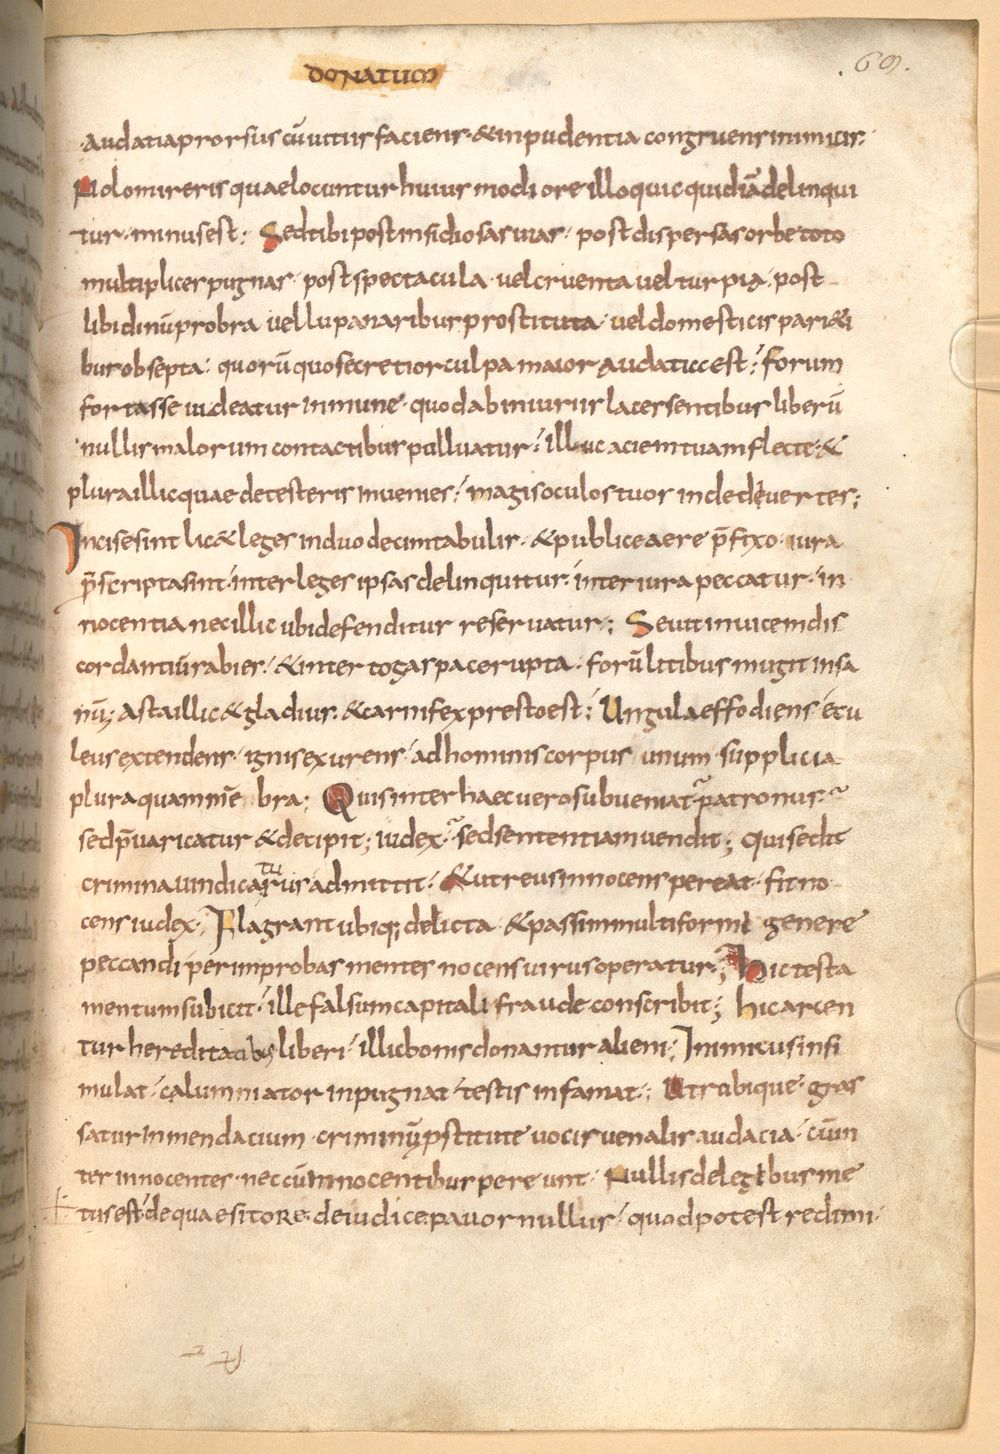 DONATUM
69.
audatia prorsus cū uitiis faciens · & inpudentia congruens inimicis ·
Nolo mireris quae locuntur huius modi ore illo quicquid iā delinqui
tur · minus est : Sed tibi post insidiosas uias · post dispersas orbe toto
multiplices pugnas · post spectacula · vel cruenta vel turpia · post
libidinū probra vel lupanaribus prostituta · vel domesticis pari&i
bus obsepta : quorū quo secretior culpa maior audatia est : forum
fortasse uideatur inmune · quod ab iniuriis lacessentibus liberū
nullis malorum contactibus polluatur : illuc aciem tuam flecte · &
plura illic quae detesteris inuenies : magis oculos tuos inde deuertes ;
Incise sint lic& leges in duodecim tabulis · & publice aere p̄fixo iura
p̄scripta sint · inter leges ipsas delinquitur · inter iura peccatur · in
nocentia nec illic ubi defenditur reseruatur ; Seuit inuicem dis
cordantiū rabies · & inter togas pace rupta · forū litibus mugit insa
nū ; asta illic & gladius · & carnifex presto est : Ungula effodiens ecu
leus extendens · ignis exurens · ad hominis corpus unum supplicia
plura quam mē bra ; Quis inter haec uero subueniat patronus
sed p̄uaricatur & decipit ; iudex · sed sententiam vendit ; qui sedit
crimina uindicaturus admittit : & ut reus innocens pereat · fit no
cens iudex · Flagrant ubiq; delicta · & passim multiformi genere
peccandi per improbas mentes nocens uirus operatur ; Hic testa
mentum subicit : ille falsum capitali fraude conscribit ; hic arcen
tur hereditatibus liberi · illic bonis donantur alieni ; Inimicus insi
mulat · calumniator inpugnat · testis infamat : Utrubique gras
satur in mendacium criminū pstitute uocis venalis audacia · cū in
ter innocentes · nec cū innocentibus pereunt · Nullis de legibus me
tus est · de quaesitore · de iudice pauor nullus · quod potest redimi ·